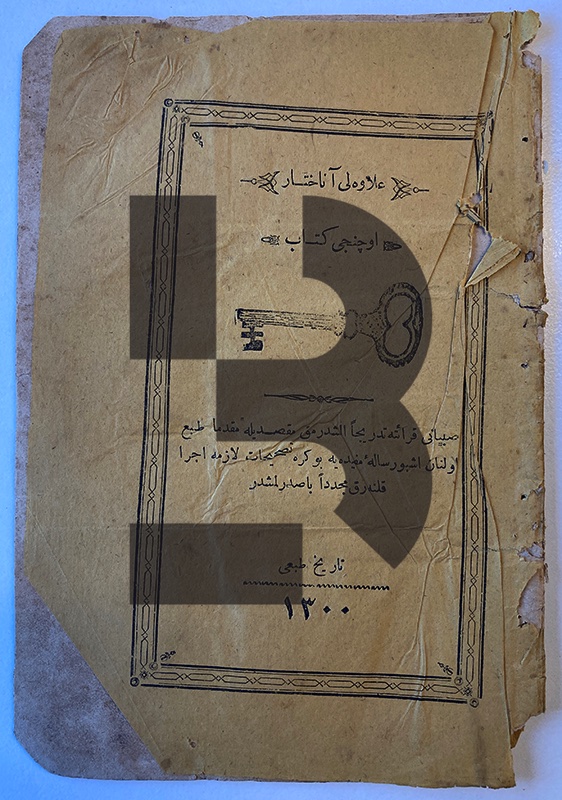 علاوه‌لی آناختار
اوچنجی کتاب
صبیانی قرائته تدریجاً الشدرمق مقصدیله مقدما طبع
اولنان اشبو رسالهٔ مفیده به بوکره تصحیحات لازمه اجرا
قلنه‌رق مجدداً باصدرلمشدر
تاریخ طبعی
١٣٠٠